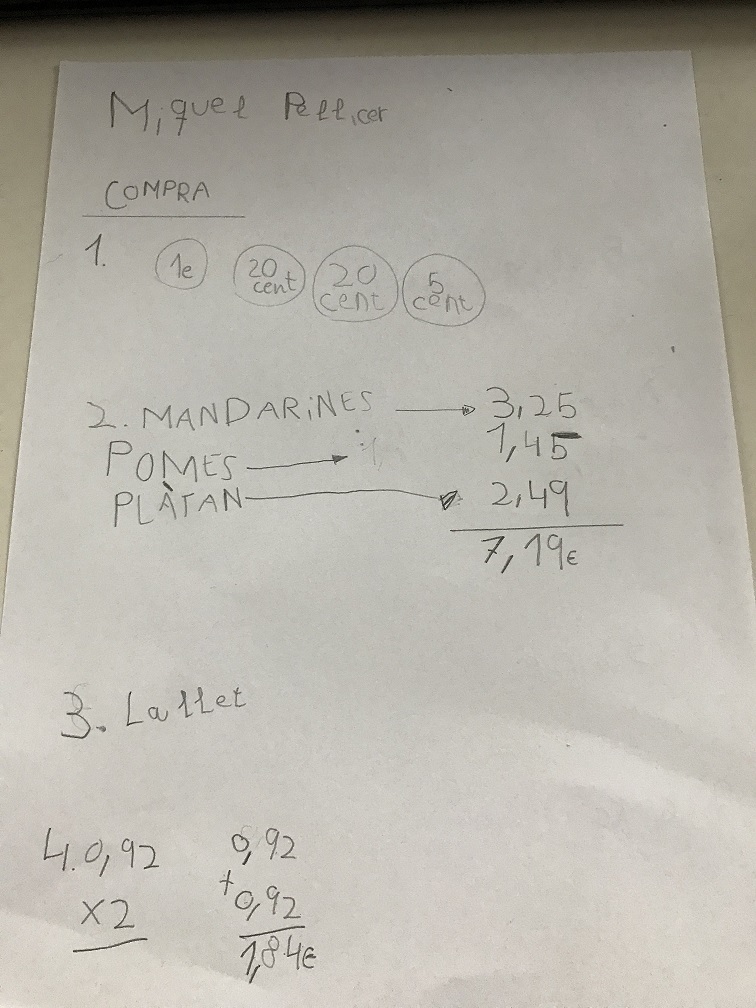 Miquel Pellicer
COMPRA
1. 1e 20 cent 20 cent 5 cent
2. MANDARINES → 3,25
POMES → 1,45
PLÀTAN → 2,49
7,19€
3. La llet
4. 0,92 0,92
x2 +0,92
1,84€